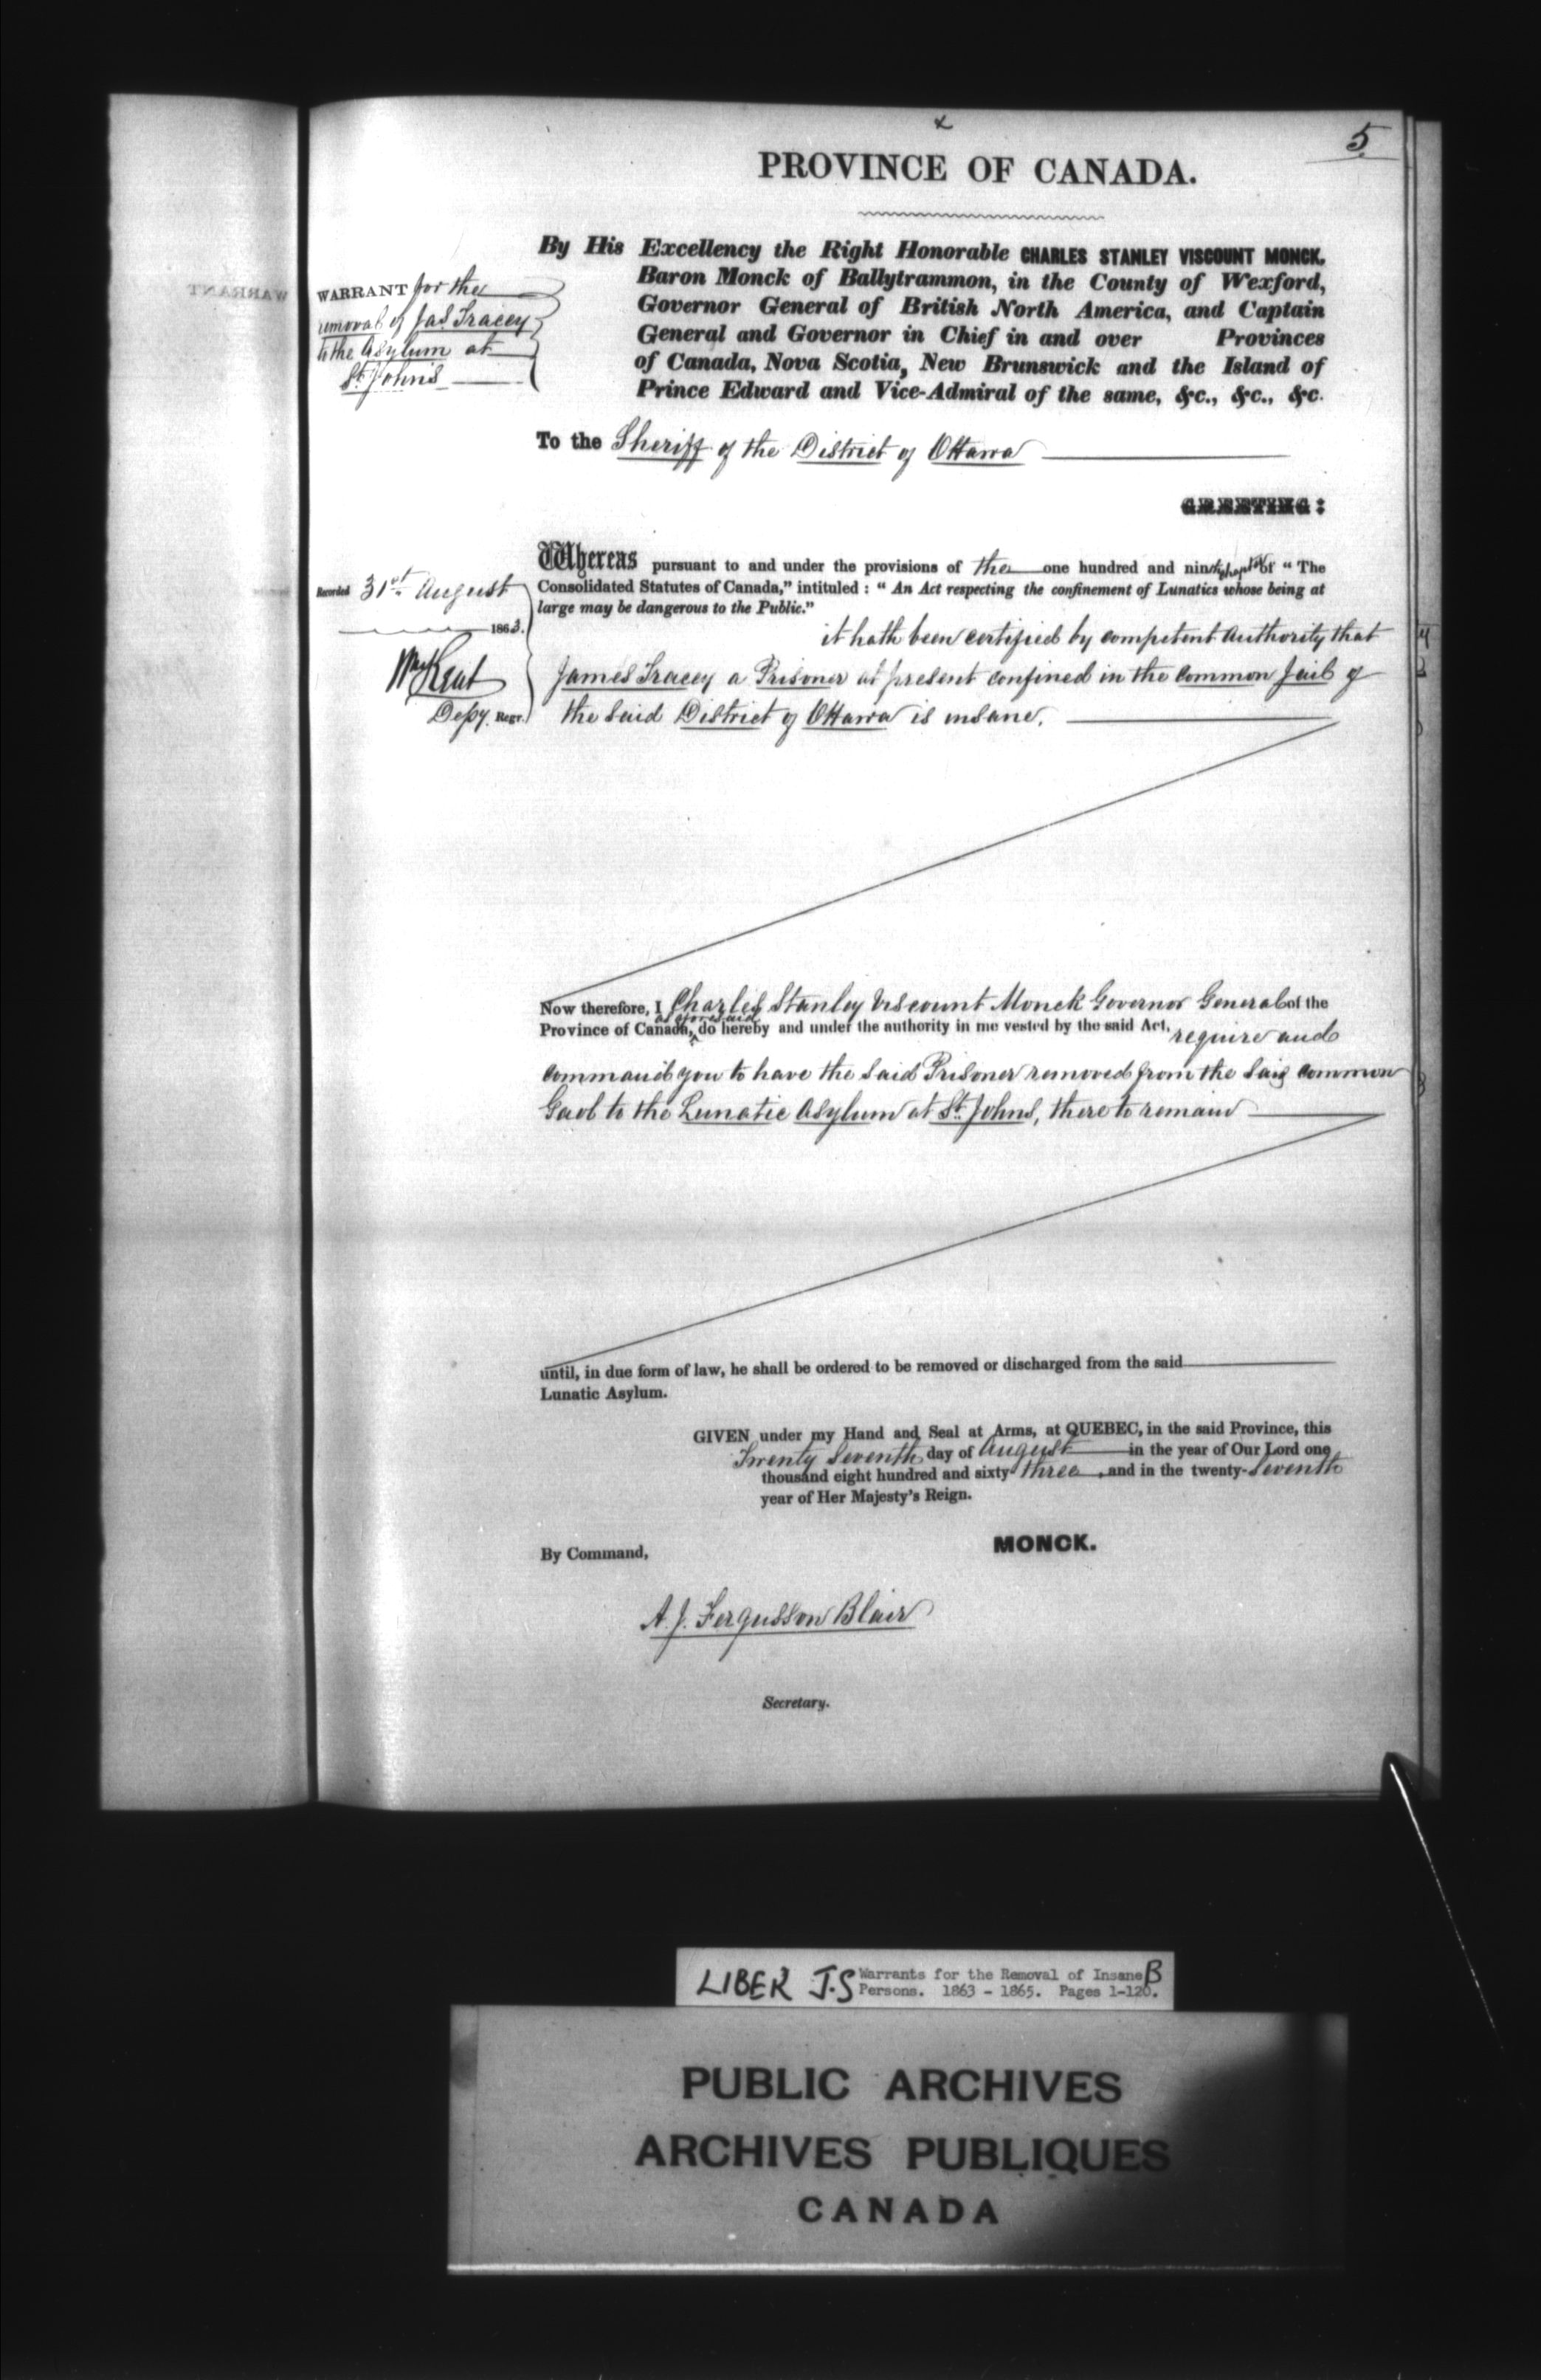 5
x
PROVINCE OF CANADA.
By His Excellency the Right Honorable CHARLES STANLEY VISCOUNT MONCK,
Baron Monck of Ballytrammon, in the County of Wexford,
Governor General of British North America, and Captain
General and Governor in Chief in and over Provinces
of Canada, Nova Scotia, New Brunswick and the Island of
Prince Edward and Vice-Admiral of the same, &c., &c., &c.
WARRANT for the
removal of Jas Tracey
to the Asylum at
St. Johns
WARRANT
To the Sheriff of the District of Ottawa
GREETING:
Whereas pursuant to and under the provisions of the one hundred and ninth chapter of "The
Consolidated Statutes of Canada," intituled: "An Act respecting the confinement of Lunatics whose being at
large may be dangerous to the Public."
it hath been certified by competent Authority that
James Tracey a Prisoner at present confined in the Common Jail of
the said District of Ottawa is insane.
Recorded 31st August
1863.
Wm Kent
Depy. Regr.
Now therefore, I Charles Stanley Viscount Monck Governor General of the
Province of Canada, as aforesaid do hereby and under the authority in me vested by the said Act, require and
command you to have the said Prisoner removed from the said Common
Gaol to the Lunatic Asylum at St. Johns, there to remain
until, in due form of law, he shall be ordered to be removed or discharged from the said
Lunatic Asylum.
GIVEN under my Hand and Seal at Arms, at QUEBEC, in the said Province, this
Twenty Seventh day of August in the year of Our Lord one
thousand eight hundred and sixty three, and in the twenty-seventh
year of Her Majesty's Reign.
MONCK.
By Command,
A. J. Fergusson Blair
Secretary.
LIBER J.S Warrants for the Removal of Insane B
Persons. 1863 - 1865. Pages 1-120.
PUBLIC ARCHIVES
ARCHIVES PUBLIQUES
CANADA